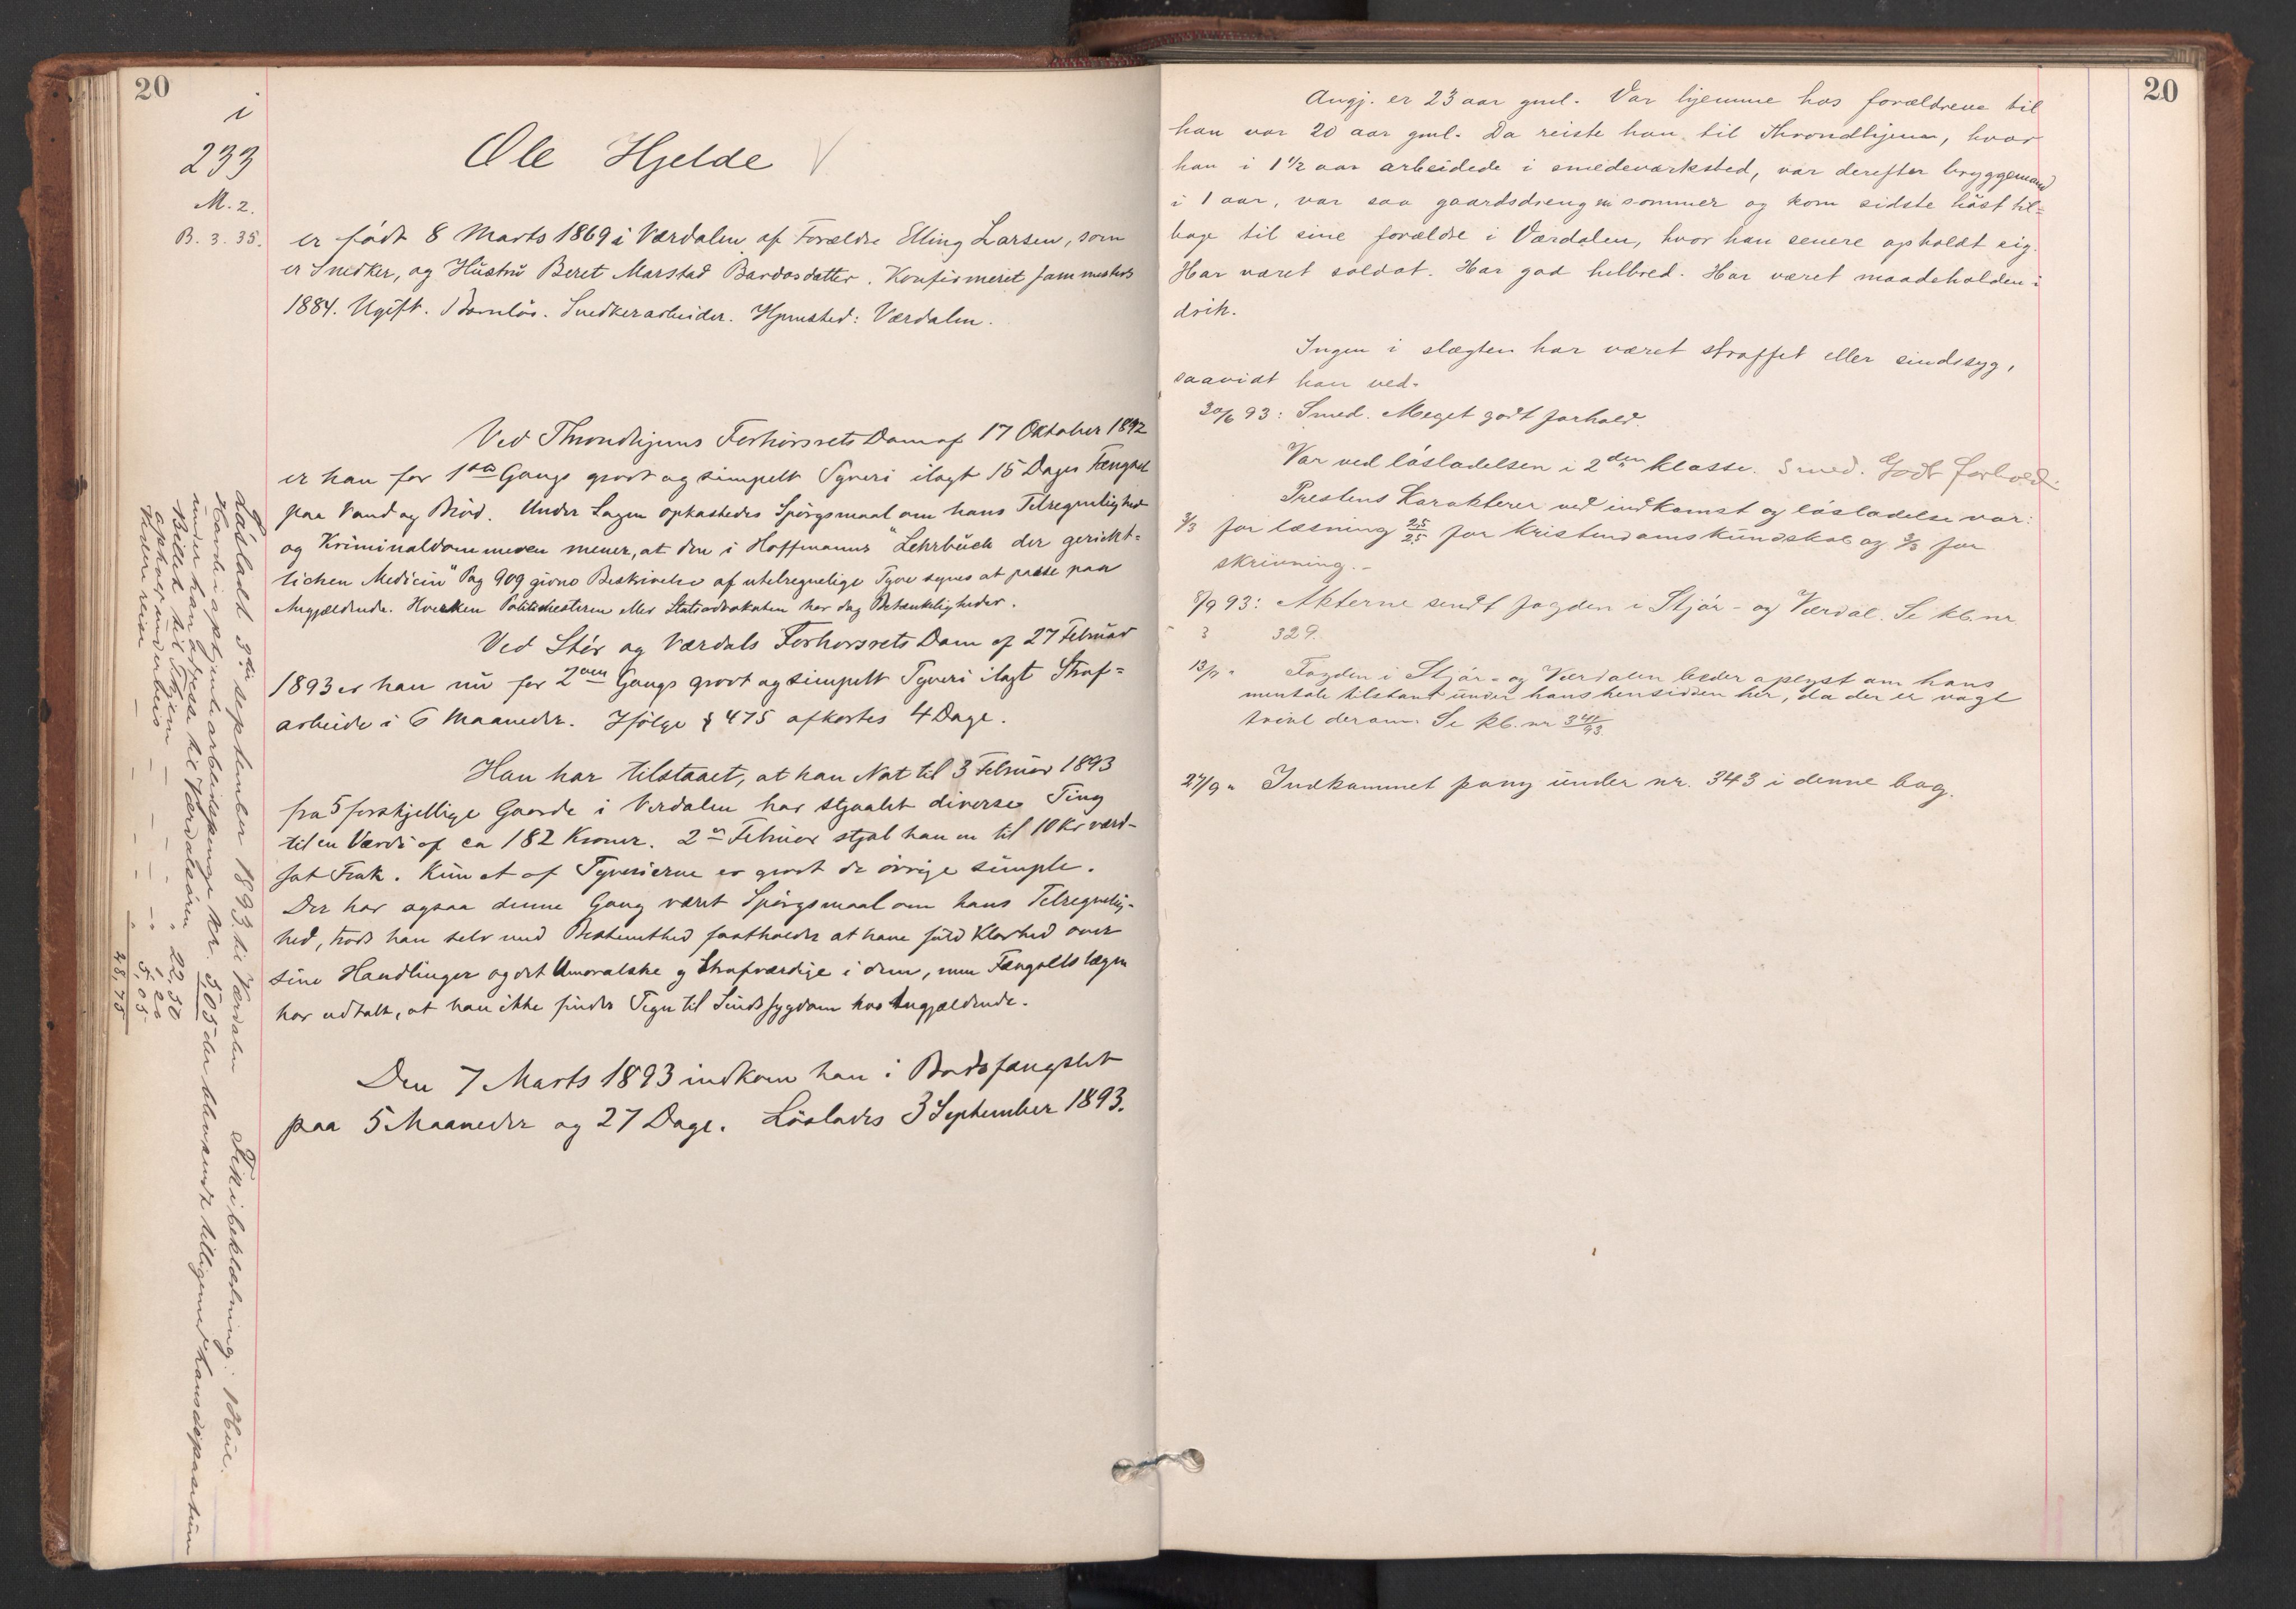 20
i
233
M. 2.
B. 3. 35.
Ole Hjelde
er født 8 Marts 1869 i Værdalen af Forældre Elling Larsen, som
er Snedker, og Hustru Beret Marstad Bardosdatter. Konfirmeret sammesteds
1884. Ugift. Barnløs. Snedkerarbeider. Hjemsted: Værdalen.
Ved Throndhjems Forhørsrets Dom af 17 Oktober 1892
er han for 1ste Gangs grovt og simpelt Tyveri ilagt 15 Dages Fængsel
paa Vand og Brød. Under Sagen opkastedes Spørgsmaal om hans Tilregnelighed
og Kriminaldommeren mener, at den i Hoffmanns "Lehrbuch der gericht-
lichen Medicin" Pag 909 givne Beskrivelse af utilregnelige Tyve synes at passe paa
Angjældende. Hverken Politimesteren eller Statsadvokaten har dog Betænkeligheder.
Ved Stør og Værdals Forhørsrets Dom af 27 Februar
1893 er han nu for 2den Gangs grovt og simpelt Tyveri ilagt Straf=
arbeide i 6 Maaneder. Ifølge § 475 afkortes 4 Dage.
Han har tilstaaet, at han Nat til 3 Februar 1893
fra 5 forskjellige Gaarde i Verdalen har stjaalet diverse Ting
til en Værdi af ca 182 Kroner. 2den Februar stjal han en til 10 Kr værd-
sat Frak. Kun et af Tyverierne er grovt de øvrige simple.
Der har ogsaa denne Gang været Spørgsmaal om hans Tilregnelig-
hed, trods han selv med Bestemthed fastholder at have fuld Klarhed over
sine Handlinger og det Umoralske og Strafværdige i dem, men Fængselslægen
har udtalt, at han ikke finder Tegn til Sindssygdom hos Angjældende.
Den 7 Marts 1893 indkom han i Bodsfængslet
paa 5 Maaneder og 27 Dage. Løslades 3 September 1893.
Løsladt 3die september 1893 til Værdalen. Fik i beklædning: 1 Hue.
Havde i opptjente arbeidspenge kr. 5,05 der blev sendt tilligemed hans depositum
under hans adresse til Værdalsøren
Billet til Thjem — — — " 22,50
ophold underveis — — — " 1,20
Videre reise — — — — " 5,05
28,75
20
Angj. er 23 aar gml. Var hjemme hos forældrene til
han var 20 aar gml. Da reiste han til Throndhjem, hvor
han i 1 1/2 aar arbeidede i smedeværksted, var derefter bryggemand
i 1 aar, var saa gaardsdreng en sommer og kom sidste høst til=
bage til sine forældre i Værdalen, hvor han senere opholdt sig.
Har været soldat. Har god helbred. Har været maadeholden i
drik.
Ingen i slægten har været straffet eller sindssyg,
saavidt han ved.
30/6 93: Smed. Meget godt forhold.
Var ved løsladelsen i 2den klasse. Smed. Godt forhold.
Prestens Karakterer ved indkomst og løsladelse var:
3/3 for læsning 2,5/2,5 for kristendomskundskab og 3/3 for
skrivning.-
8/9 93: Akterne sendt fogden i Stjør- og Værdal. Se kb. nr
329.
13/9 " Fogden i Stjør- og Værdalen beder oplyst om hans
mentale tilstand under hans hensidden her, da der er vagt
tvivl derom. Se kb. nr 341/93.
27/9 " Indkommet paany under nr. 343 i denne bog.